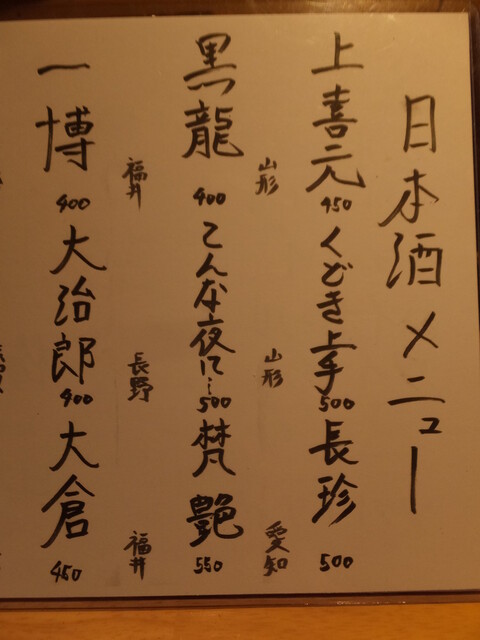 日本酒メニュー
上喜元 450
山形
くどき上手 500
山形
長珍 500
愛知
黒龍 400
福井
こんな夜に… 500
長野
梵 艶 550
福井
一博 400
大治郎 400
大倉 450